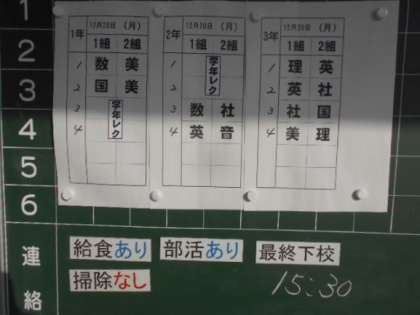 1
2
3
4
5
6
連絡
1年 12月20日 (月)
1組 2組
1 数 美
2 国 美
3 学年レク
4
2年 12月20日 (月)
1組 2組
1 学年レク
2
3 数 社
4 英 音
3年 12月20日 (月)
1組 2組
1 理 英
2 英 社
3 社 国
4 美 理
給食あり 部活あり 最終下校
掃除なし 15:30